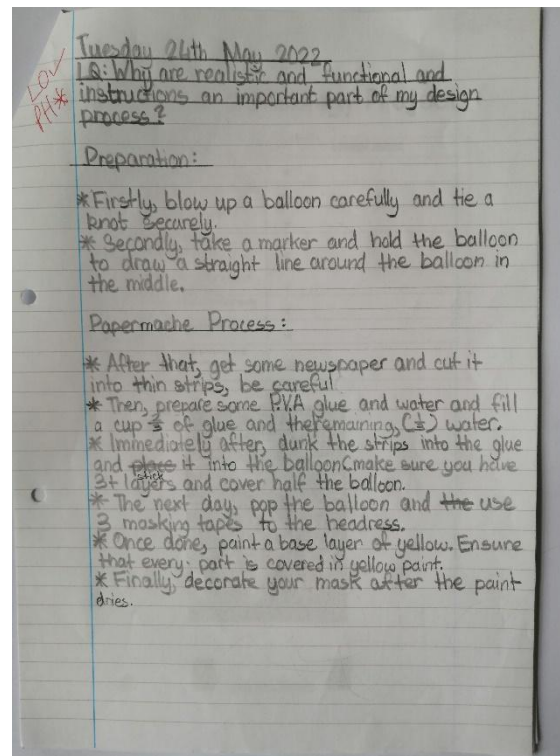 Tuesday 24th May 2022
LO✓
PH*
LQ: Why are realistic and functional and
instructions an important part of my design
process?
Preparation:
* Firstly, blow up a balloon carefully and tie a
knot securely.
* Secondly, take a marker and hold the balloon
to draw a straight line around the balloon in
the middle.
Papermache Process:
* After that, get some newspaper and cut it
into thin strips, be careful
* Then, prepare some P.V.A glue and water and fill
a cup of glue and the remaining, water.
* Immediately after, dunk the strips into the glue
and stick it into the balloon(make sure you have
3+ layers and cover half the balloon.
* The next day, pop the balloon and the use
3 masking tapes to the headress.
* Once done, paint a base layer of yellow. Ensure
that every part is covered in yellow paint.
* Finally, decorate your mask after the paint
dries.